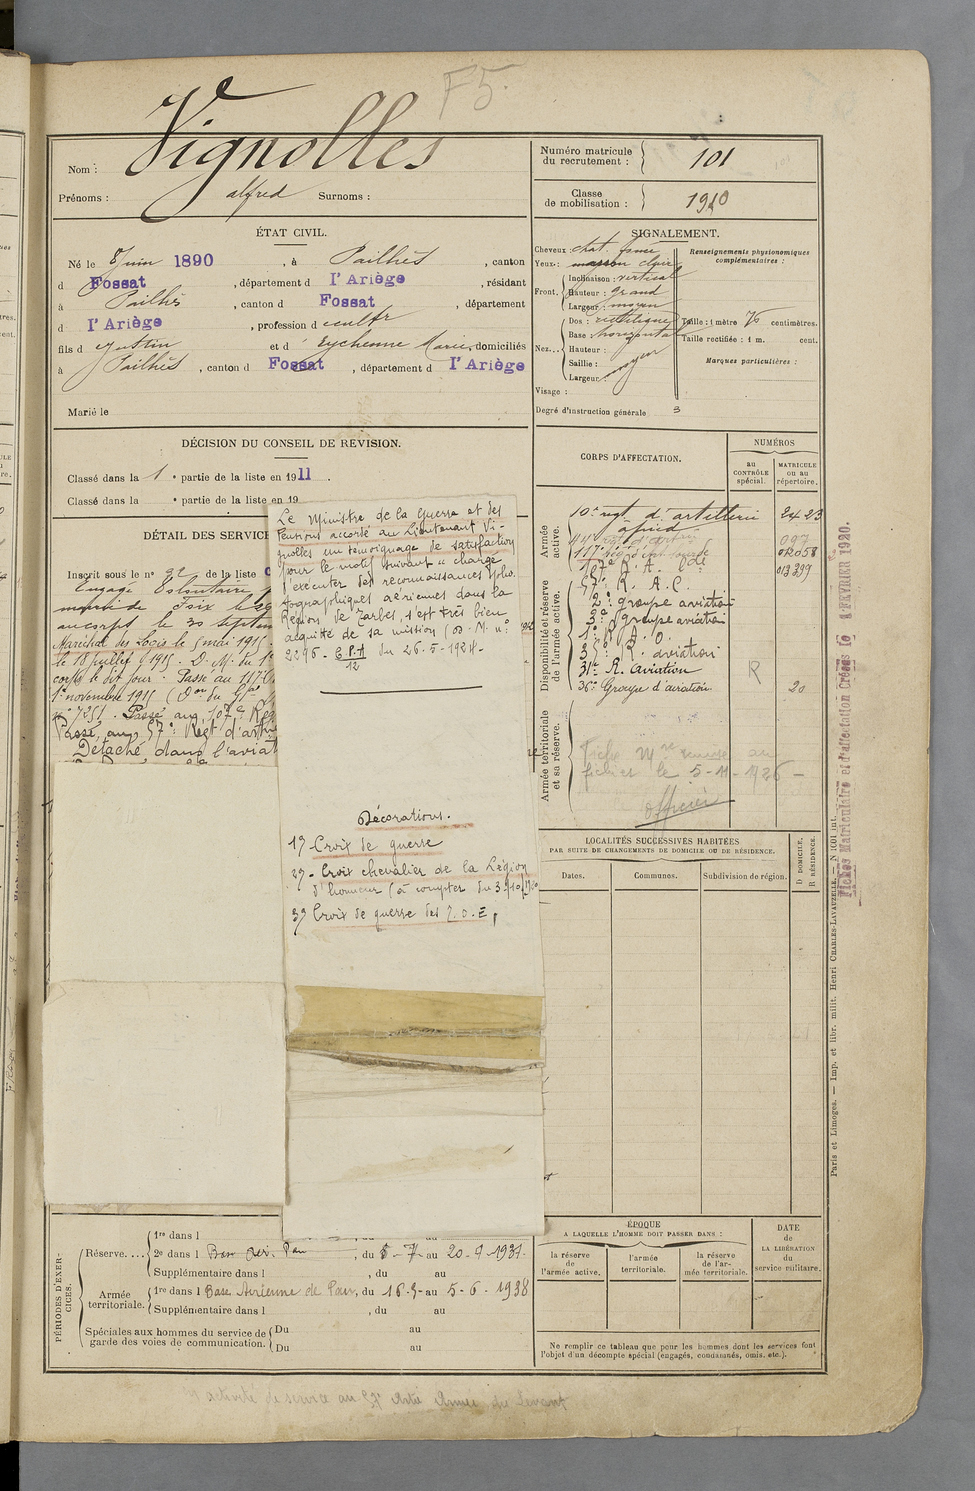 F5.
Nom : Vignolles
Prénoms : alfred Surnoms :
Numéro matricule du recrutement : 101
Classe de mobilisation : 1910
ÉTAT CIVIL.
Né le 8 juin 1890, à Pailhès, canton
d Fossat, département d l'Ariège, résidant
à Pailhès, canton d Fossat, département
d l'Ariège, profession d cultr
fils d Justin et d' Eychenne Marie, domiciliés
à Pailhès, canton d Fossat, département d l'Ariège
Marié le
SIGNALEMENT.
Cheveux : chat. foncé
Yeux : marron clair
Front. Inclinaison : vertical
Hauteur : grand
Largeur : moyen
Nez... Dos : rectiligne
Base : horizontal
Hauteur :
Saillie : moyen
Largeur :
Visage :
Degré d'instruction générale 3
Renseignements physionomiques complémentaires :
Taille : 1 mètre 76 centimètres.
Taille rectifiée : 1 m. cent.
Marques particulières :
DÉCISION DU CONSEIL DE REVISION.
Classé dans la 1e partie de la liste en 1911.
Classé dans la e partie de la liste en 19
DÉTAL DES SERVICE
Inscrit sous le n° 92 de la liste
Engagé Volontaire
mairie de Foix le
au corps le 30 septem
Maréchal des Logis le 5 mai 1915
le 18 juillet 1915. D. M. du 1
corps le dit jour. Passé au 117
1er novembre 1915
n° 7251. Passé au 107e Reg
Passé au 57e Regt d'arti
Détaché dans l'aviat
Le Ministre de la Guerre et des
Pensions accorde au Lieutenant Vi-
gnolles un témoignage de satisfaction
pour le motif suivant "chargé
d'exécuter des reconnaissances photo-
tographiques aériennes dans la
Région de Tarbes, s'est très bien
acquitté de sa mission (D. M. n°
2296 - du 26-5-1924-
Décorations.
1°) Croix de guerre
2°) Croix chevalier de la Légion
d'honneur (à compter du
3°) Croix de guerre des T.O.E.
CORPS D'AFFECTATION.
NUMÉROS
au CONTRÔLE spécial.
MATRICULE ou au répertoire.
Armée active.
10e regt d'artillerie 2423
à pied
097
117e
107e R. A. 013399
Disponibilité et réserve de l'armée active.
57e R. A. C.
2e groupe aviation
3e groupe aviation
31e R. aviation R
36e Groupe d'aviation 20
Armée territoriale et sa réserve.
Fiche Mle remise au
fichier le 5-11-1926-
officier
Fiches Matriculaire et d'affectation Créées le 4 FEVRIER 1920.
LOCALITÉS SUCCESSIVES HABITÉES
PAR SUITE DE CHANGEMENTS DE DOMICILE OU DE RÉSIDENCE.
Dates. Communes. Subdivision de région.
D DOMICILE. R RÉSIDENCE.
Paris et Limoges. — Imp. et libr. milit. Henri CHARLES-LAVAUZELLE.
PÉRIODES D'EXERCICES.
Réserve.... 1re dans l
2e dans l Base Aér. Pau, du 5-7- au 20-7-1931.
Supplémentaire dans l , du au
Armée territoriale. 1re dans l Base Aérienne de Pau, du 16-5- au 5-6-1938
Supplémentaire dans l , du au
Spéciales aux hommes du service de garde des voies de communication. Du au
Du au
ÉPOQUE
A LAQUELLE L'HOMME DOIT PASSER DANS :
la réserve de l'armée active.
l'armée territoriale.
la réserve de l'armée territoriale.
DATE de LA LIBÉRATION du service militaire.
Ne remplir ce tableau que pour les hommes dont les services font
l'objet d'un décompte spécial (engagés, condamnés, omis, etc.).
activité de service au Armée du Levant